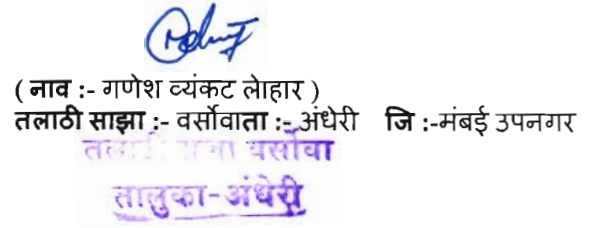 ( नाव :- गणेश व्यंकट लेाहार )
तलाठी साझा :- वर्सोवाता :- अंधेरी जि :-मंबई उपनगर
तलाठी सजा वर्सोवा
तालुका-अंधेरी